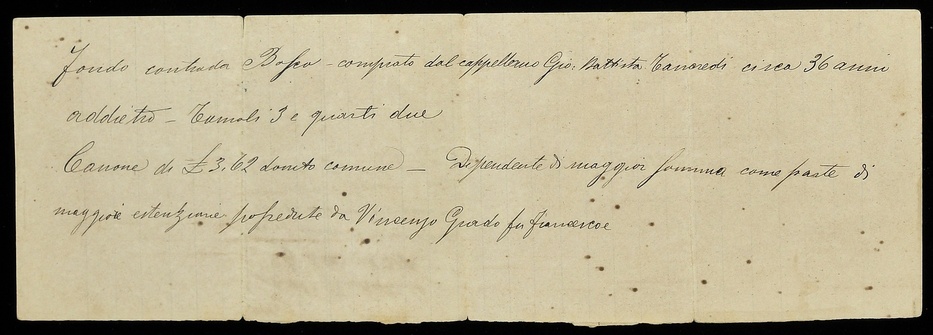 Fondo contrada Bosco - comprato dal cappellano Gio: Battista Tancredi circa 36 anni
addietro - Tomoli 3 e quarti due
Canone di £ 3,62 comune - Dipendente di maggior somma come parte di
maggiore estenzione possedute da Vincenzo Grado fu Francesco